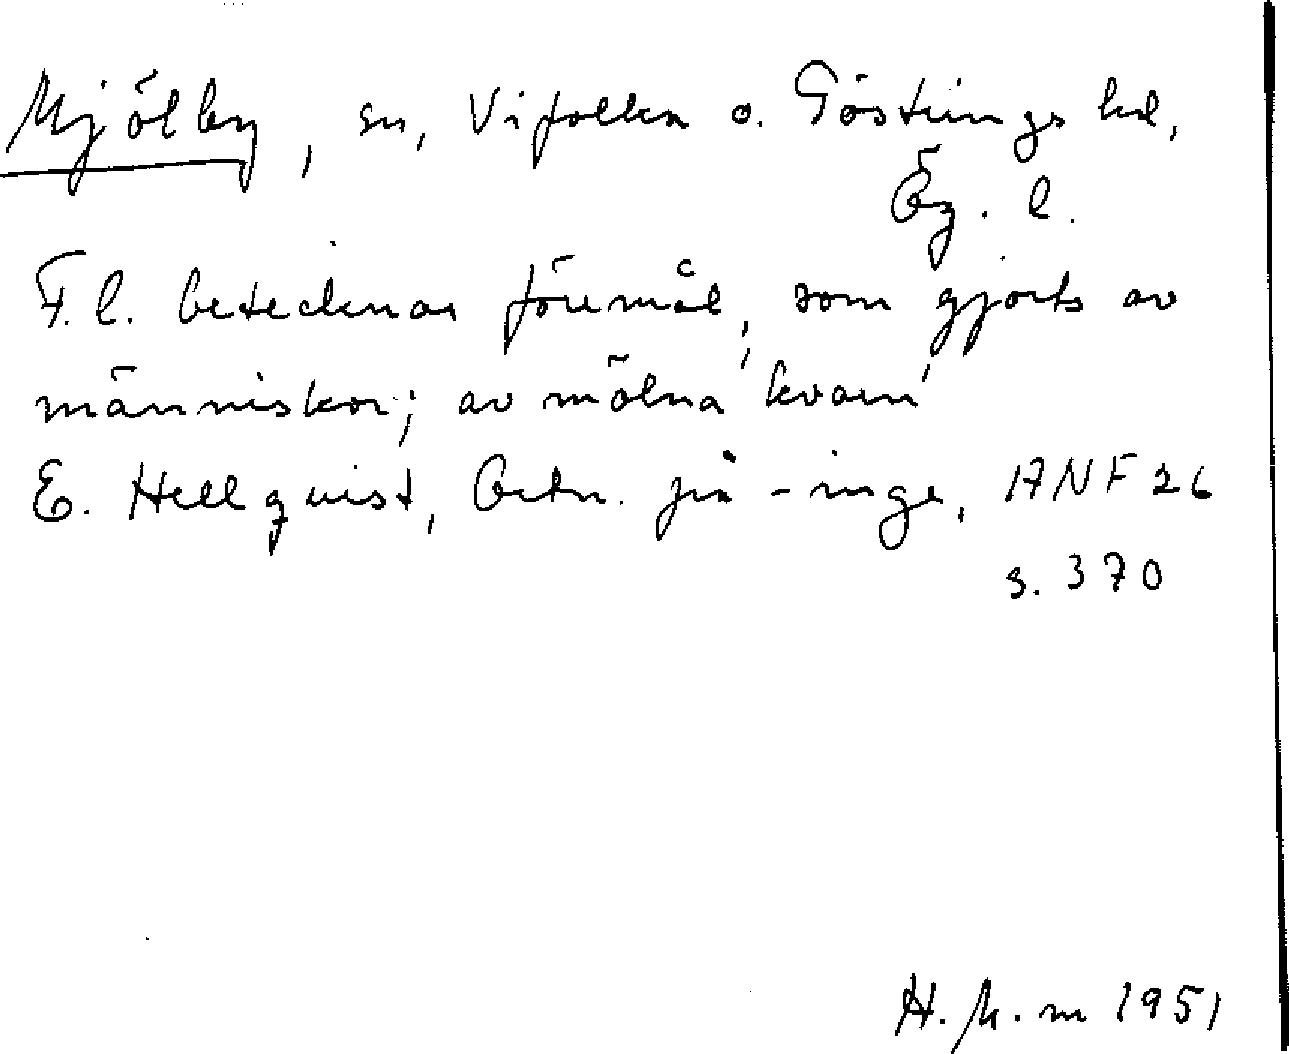 Mjölby, sn, Vifolka o. Göstrings hd,
Ög. l.
F.l. betecknar föremål, som gjorts av
människor; av mölna 'kvarn'
E. Hellquist, Ortn. på -inge, ANF 26
s. 370
H. M. m 1951